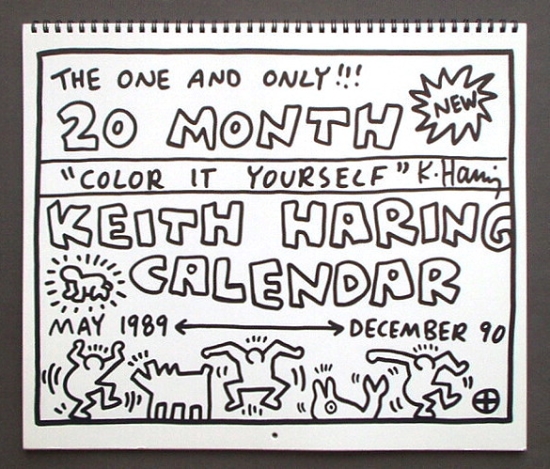 THE ONE AND ONLY!!!
20 MONTH
NEW
"COLOR IT YOURSELF" K. Haring
KEITH HARING
CALENDAR
MAY 1989 ⟷ DECEMBER 90